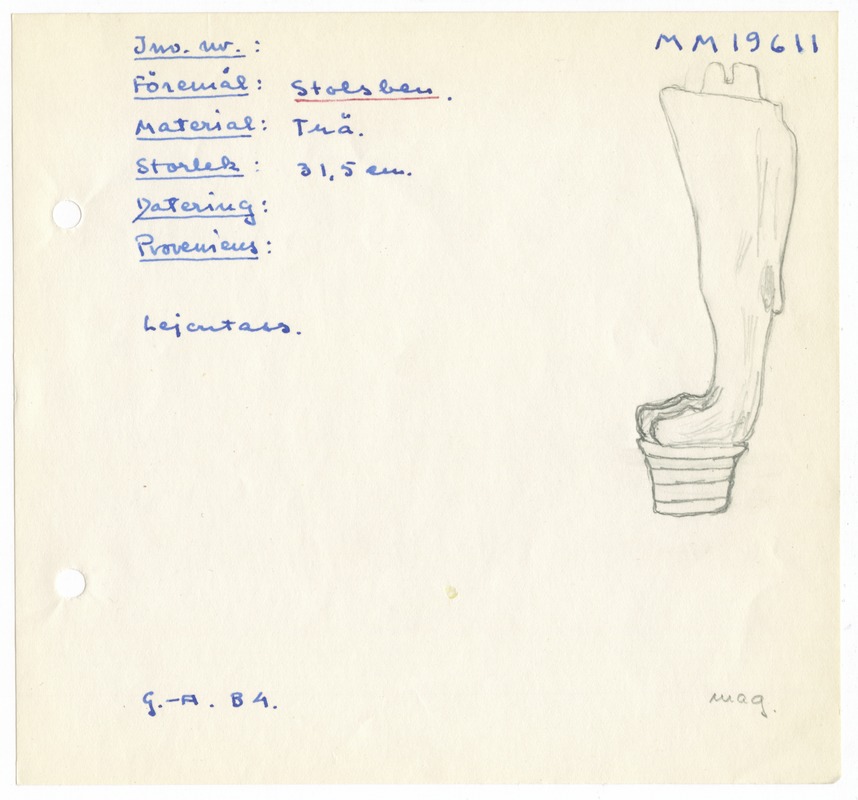 MM 19611
Inv. nr. :
Föremål : Stolsben.
Material : Trä.
Storlek : 31,5 cm.
Datering :
Proveniens :
Lejontass.
G.-A. B 4.
mag.